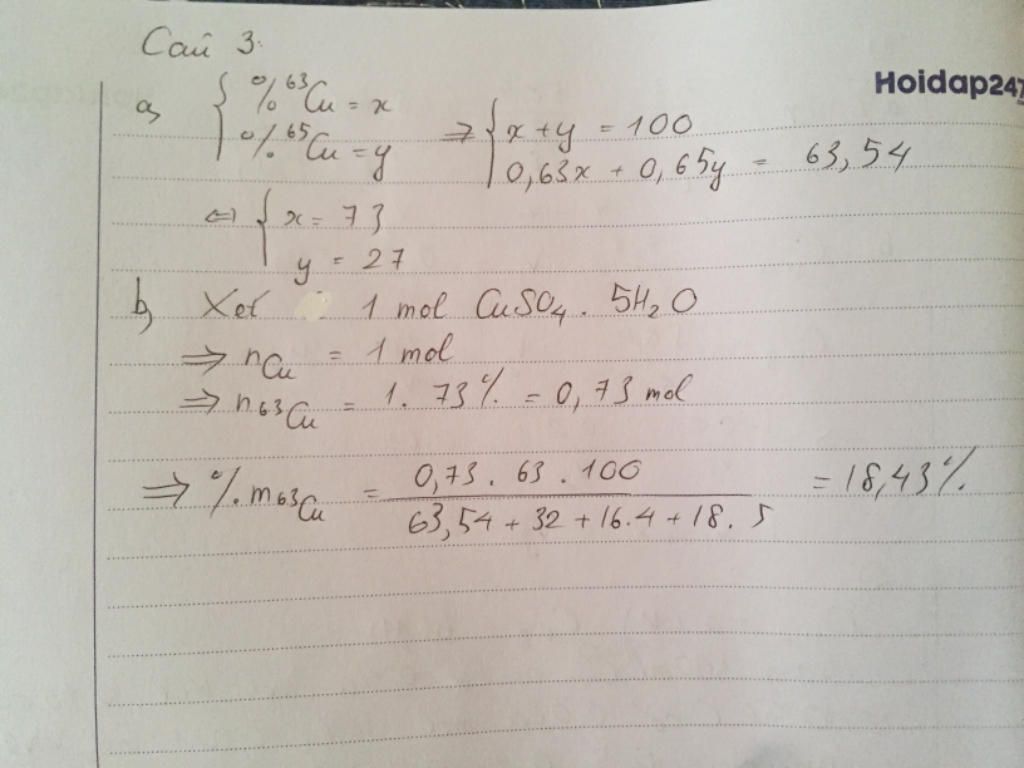 Câu 3.
Hoidap247
a, { % ⁶³Cu = x
% ⁶⁵Cu = y
⇒ { x + y = 100
0,63x + 0,65y = 63,54
⇔ { x = 73
y = 27
b, Xét 1 mol CuSO₄ . 5H₂O
⇒ nCu = 1 mol
⇒ n⁶³Cu = 1. 73% = 0,73 mol
⇒ %m⁶³Cu = 0,73 . 63 . 100 / 63,54 + 32 + 16.4 + 18. 5 = 18,43%